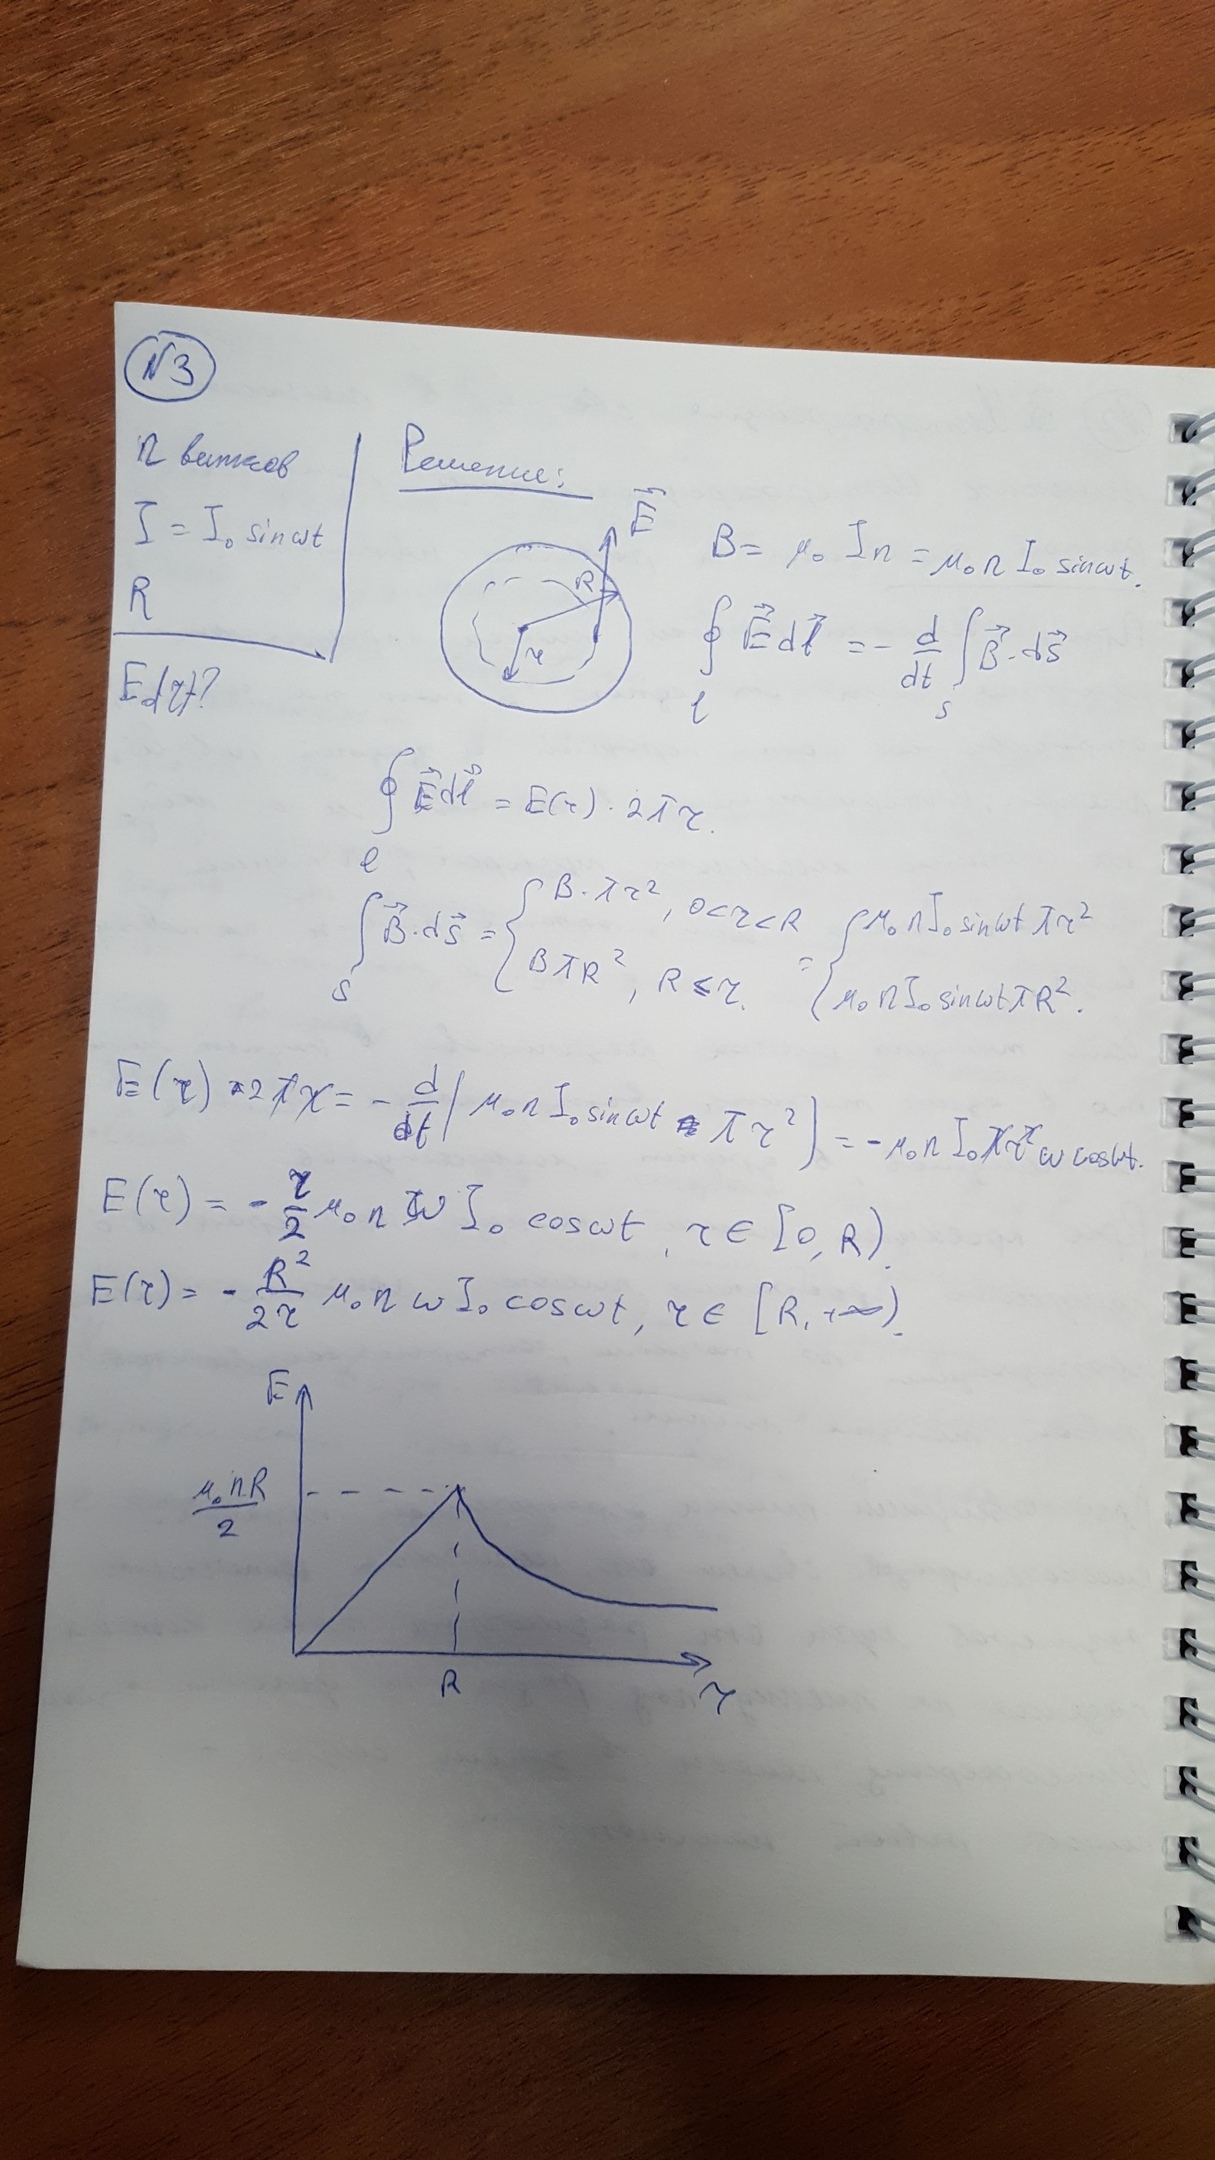 №3
n витков
I = I₀ sinωt
R
E(r)?
Решение:
E⃗
R
r
B = μ₀ I n = μ₀ n I₀ sinωt.
∮_l E⃗ dl⃗ = - d/dt ∫_s B⃗·ds⃗
∮_l E⃗ dl⃗ = E(r) · 2πr.
∫_s B⃗·ds⃗ = { B·πr², 0<r<R ; BπR², R ≤ r. = { μ₀ n I₀ sinωt πr² ; μ₀ n I₀ sinωt πR².
E(r) · 2πr = - d/dt ( μ₀ n I₀ sinωt πr² ) = -μ₀ n I₀ πr² ω cosωt.
E(r) = - r/2 μ₀ n ω I₀ cosωt, r ∈ [0, R).
E(r) = - R²/2r μ₀ n ω I₀ cosωt, r ∈ [R, +∞).
E
μ₀ n R / 2
R
r